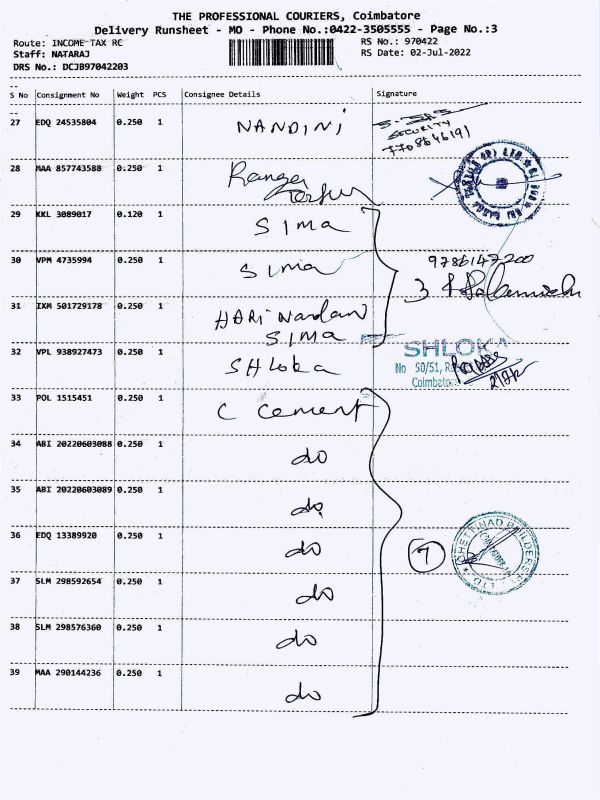 THE PROFESSIONAL COURIERS, Coimbatore
Delivery Runsheet - MO - Phone No.:0422-3505555 - Page No.:3
Route: INCOME TAX RC RS No.: 970422
Staff: NATARAJ RS Date: 02-Jul-2022
DRS No.: DCJB97042203
S No Consignment No Weight PCS Consignee Details Signature
27 EDQ 24535804 0.250 1 NANDINI
SECURITY
7708646191
28 MAA 857743588 0.250 1 Ranga
29 KKL 3089017 0.120 1 SIMA
30 VPM 4735994 0.250 1 SIMA 9786147200
3
31 IXM 501729178 0.250 1 HARI Nandan
SIMA
32 VPL 938927473 0.250 1 SHLoka SHLOKA
No 50/51,
Coimbatore
33 POL 1515451 0.250 1 C Cement
34 ABI 20220603088 0.250 1 do
35 ABI 20220603089 0.250 1 do
36 EDQ 13389920 0.250 1 do 7 CHETTINAD BUILDERS
37 SLM 298592654 0.250 1 do
38 SLM 298576360 0.250 1 do
39 MAA 290144236 0.250 1 do